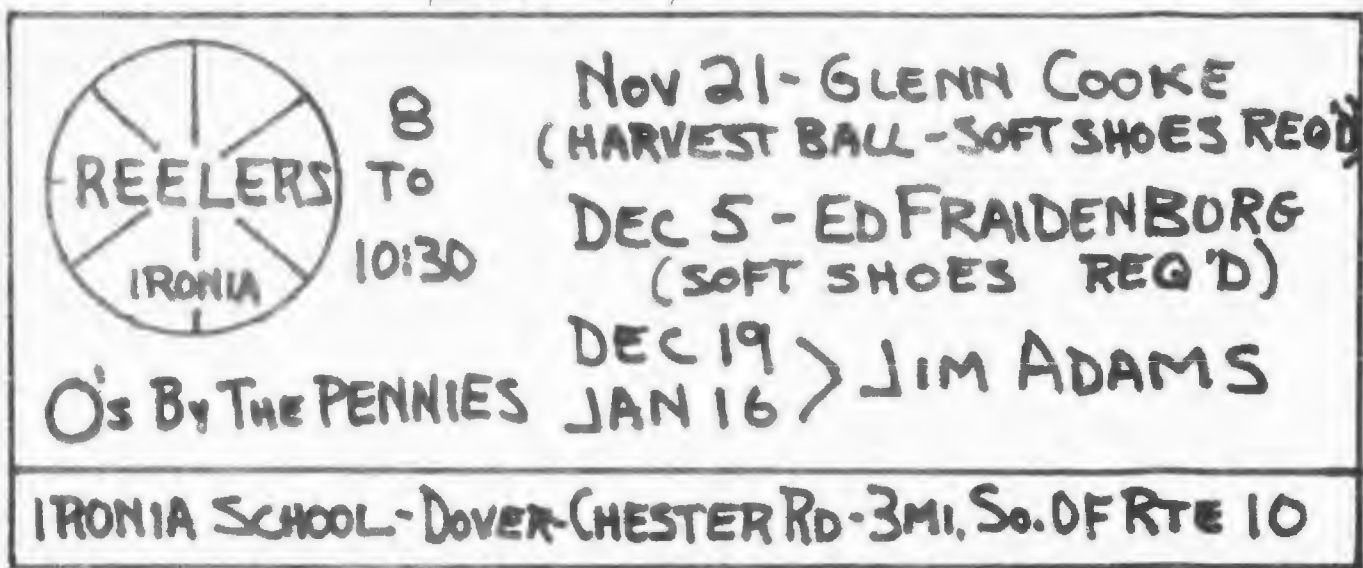 REELERS
IRONIA
8
TO
10:30
O's By THE PENNIES
Nov 21 - GLENN COOKE
(HARVEST BALL - SOFT SHOES REQ'D)
DEC 5 - ED FRAIDENBORG
(SOFT SHOES REQ'D)
DEC 19
JAN 16 > JIM ADAMS
IRONIA SCHOOL - DOVER-CHESTER RD - 3 MI. So. OF RTE 10